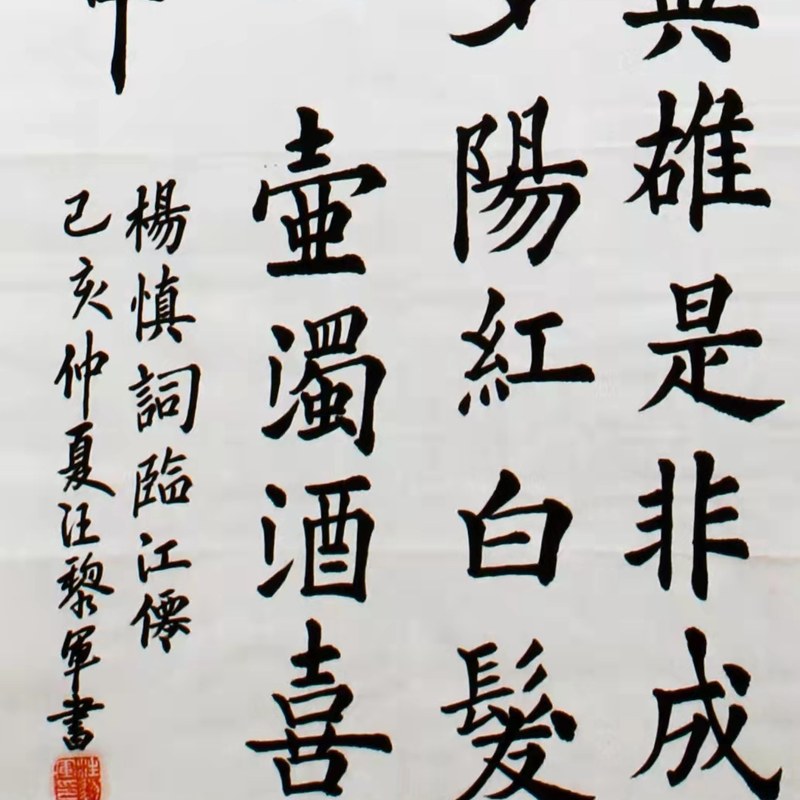 英雄是非成
夕陽紅白髮
壺濁酒喜
中
楊慎詞臨江僊
己亥仲夏汪黎軍書